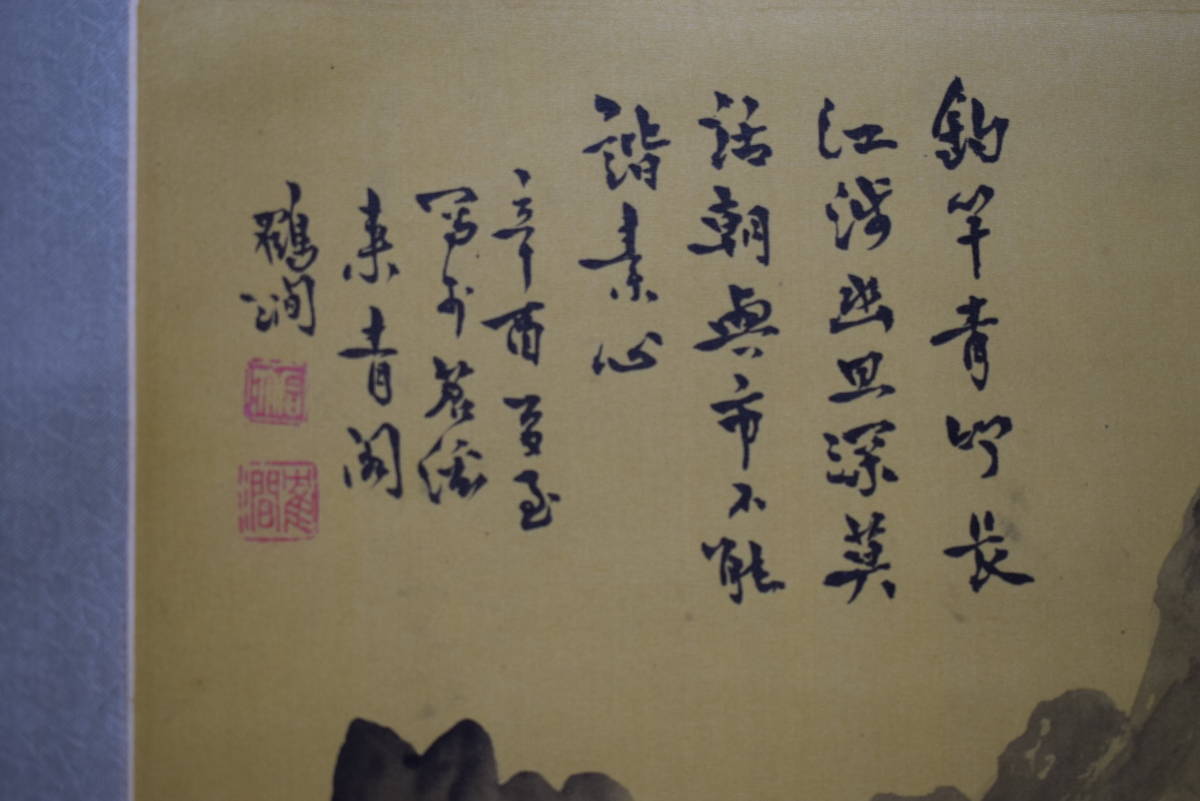 釣竿青竹長
江涉幽且深莫
話朝與市不能
諧素心
辛酉夏至
寫於
青閣
鶴澗